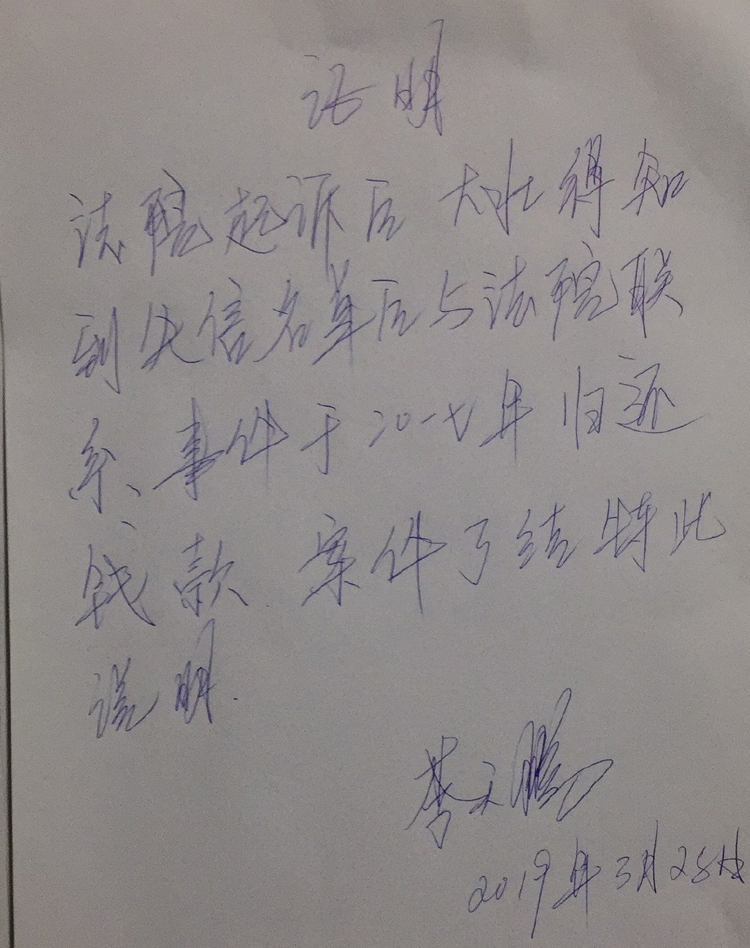 证明
法院起诉后 大壮得知
到失信名单后与法院联
系、事件于二〇一七年归还
钱款 案件了结特此
说明.
李天鹏
2019年3月28日